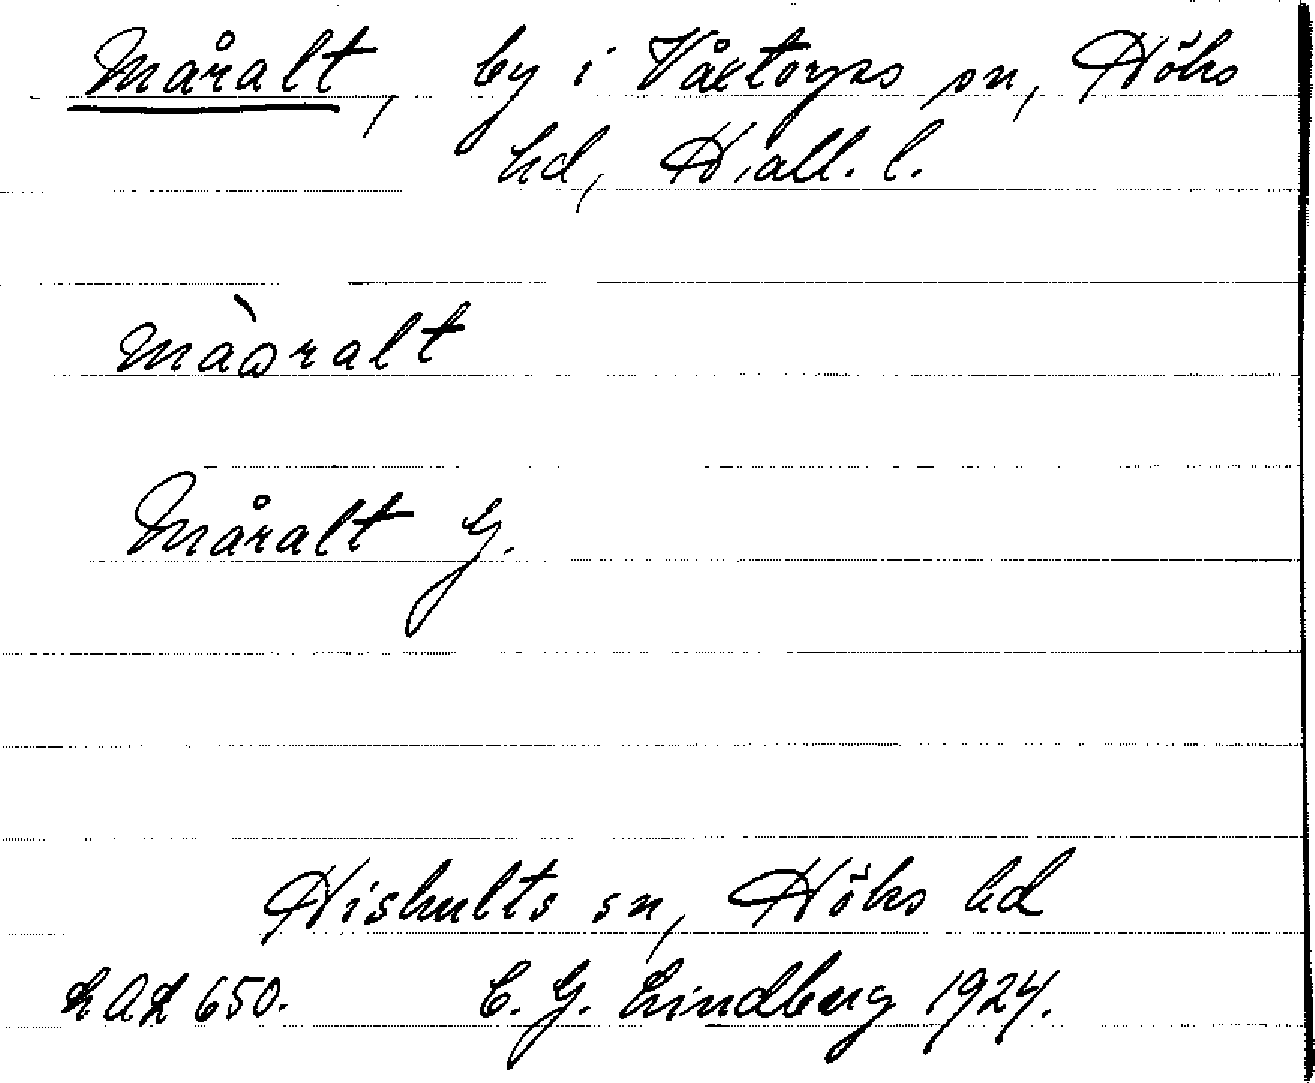 Måralt, by i Våxtorps sn, Höks
hd, Hall. l.
màɷralt
Måralt G.
Hishults sn, Höks hd
LAL 650. C. G. Lindberg 1924.